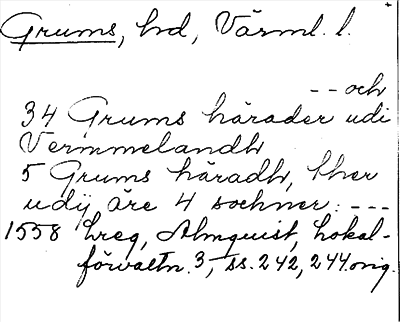 Grums, hd, Värml. l.
-- och
34 Grums härader udi
Vermmelandh
5 Grums häradh, ther
udij äre 4 sochner: ---
1558 Lreg, Almquist, Lokal-
förvaltn. 3, ss. 242, 244. orig.